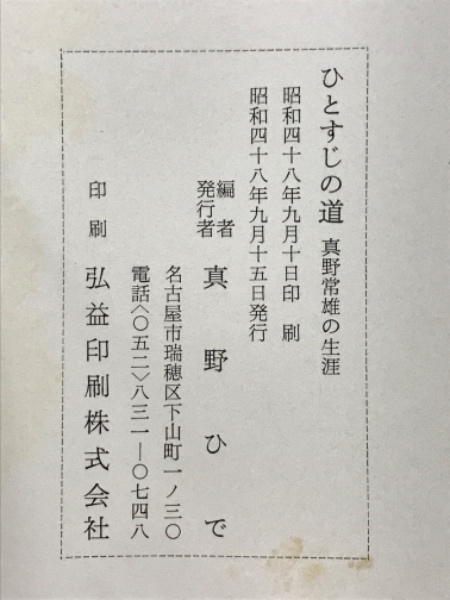 ひとすじの道 真野常雄の生涯
昭和四十八年九月十日印 刷
昭和四十八年九月十五日発行
編者
発行者 真野ひで
名古屋市瑞穂区下山町一ノ三〇
電話〈〇五二〉八三一―〇七四八
印刷 弘益印刷株式会社